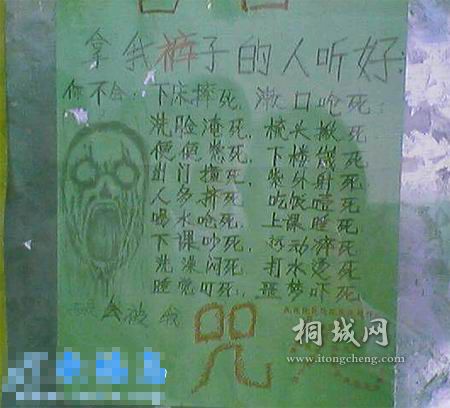 拿我裤子的人听好:
你不会:下床摔死,漱口呛死
洗脸淹死,梳头揪死
便便熏死,下楼崴死
出门横死,紫外射死
人多挤死,吃饭噎死
喝水呛死,上课睡死
下课吵死,运动猝死
洗澡闷死,打水烫死
睡觉叮死,噩梦吓死
会被我
咒
桐城网
www.itongcheng.com